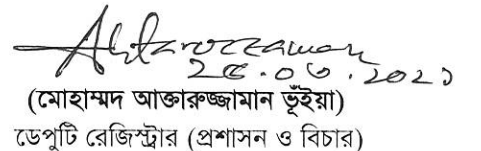 Aktaruzzaman
(মোহাম্মদ আক্তারুজ্জামান ভূঁইয়া)
ডেপুটি রেজিস্ট্রার (প্রশাসন ও বিচার)